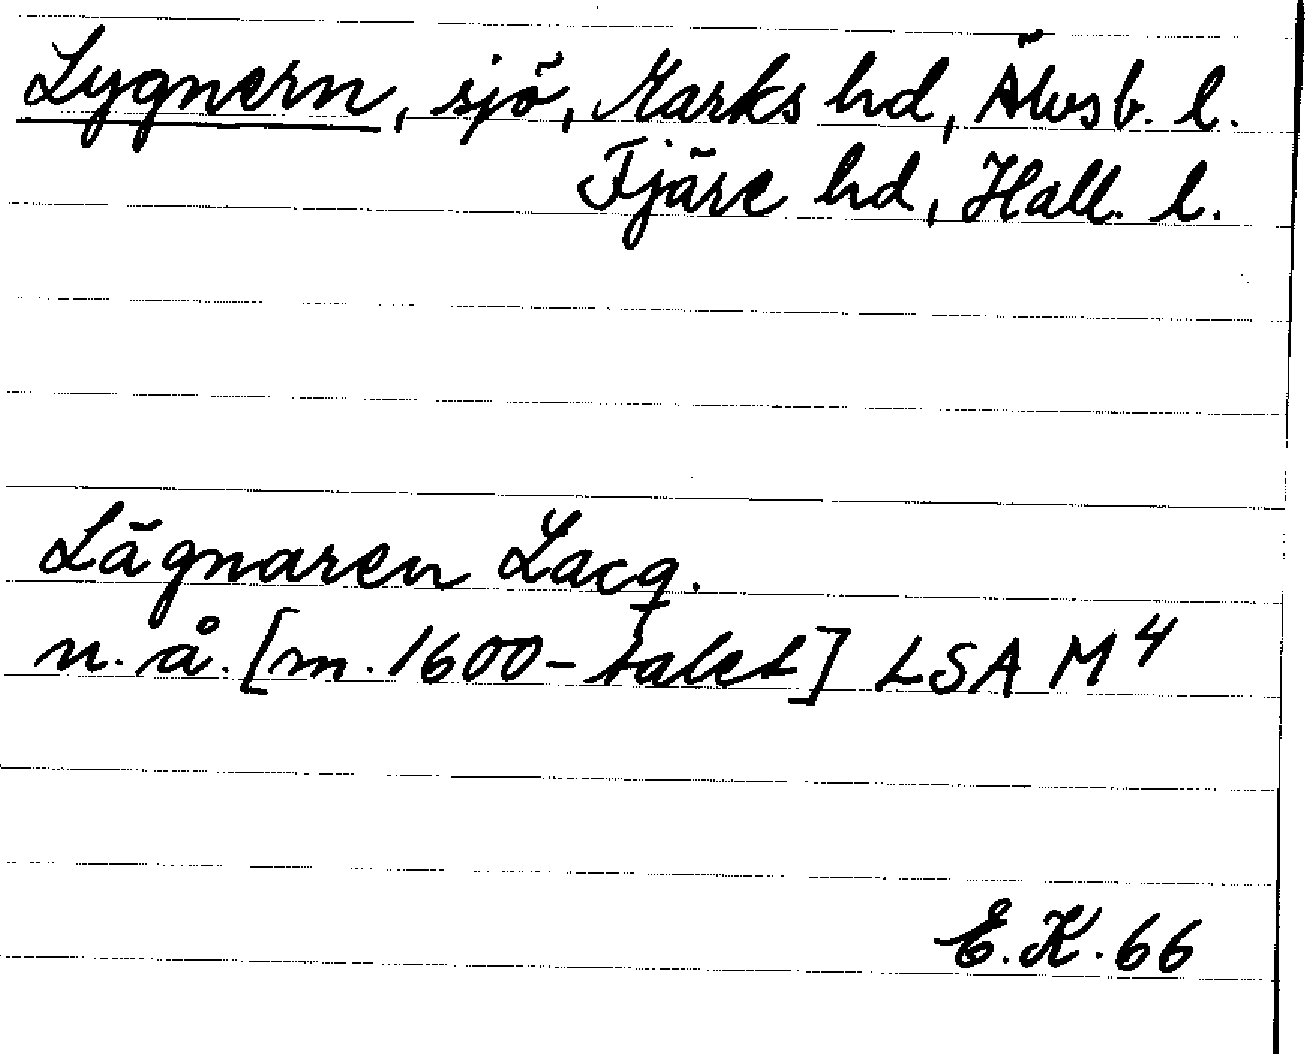 Lygnern, sjö, Marks hd, Älvsb. l.
Fjäre hd, Hall. l.
Lägnaren Lacq.
u. å. [m. 1600-talet] LSA M 4
E.K. 66